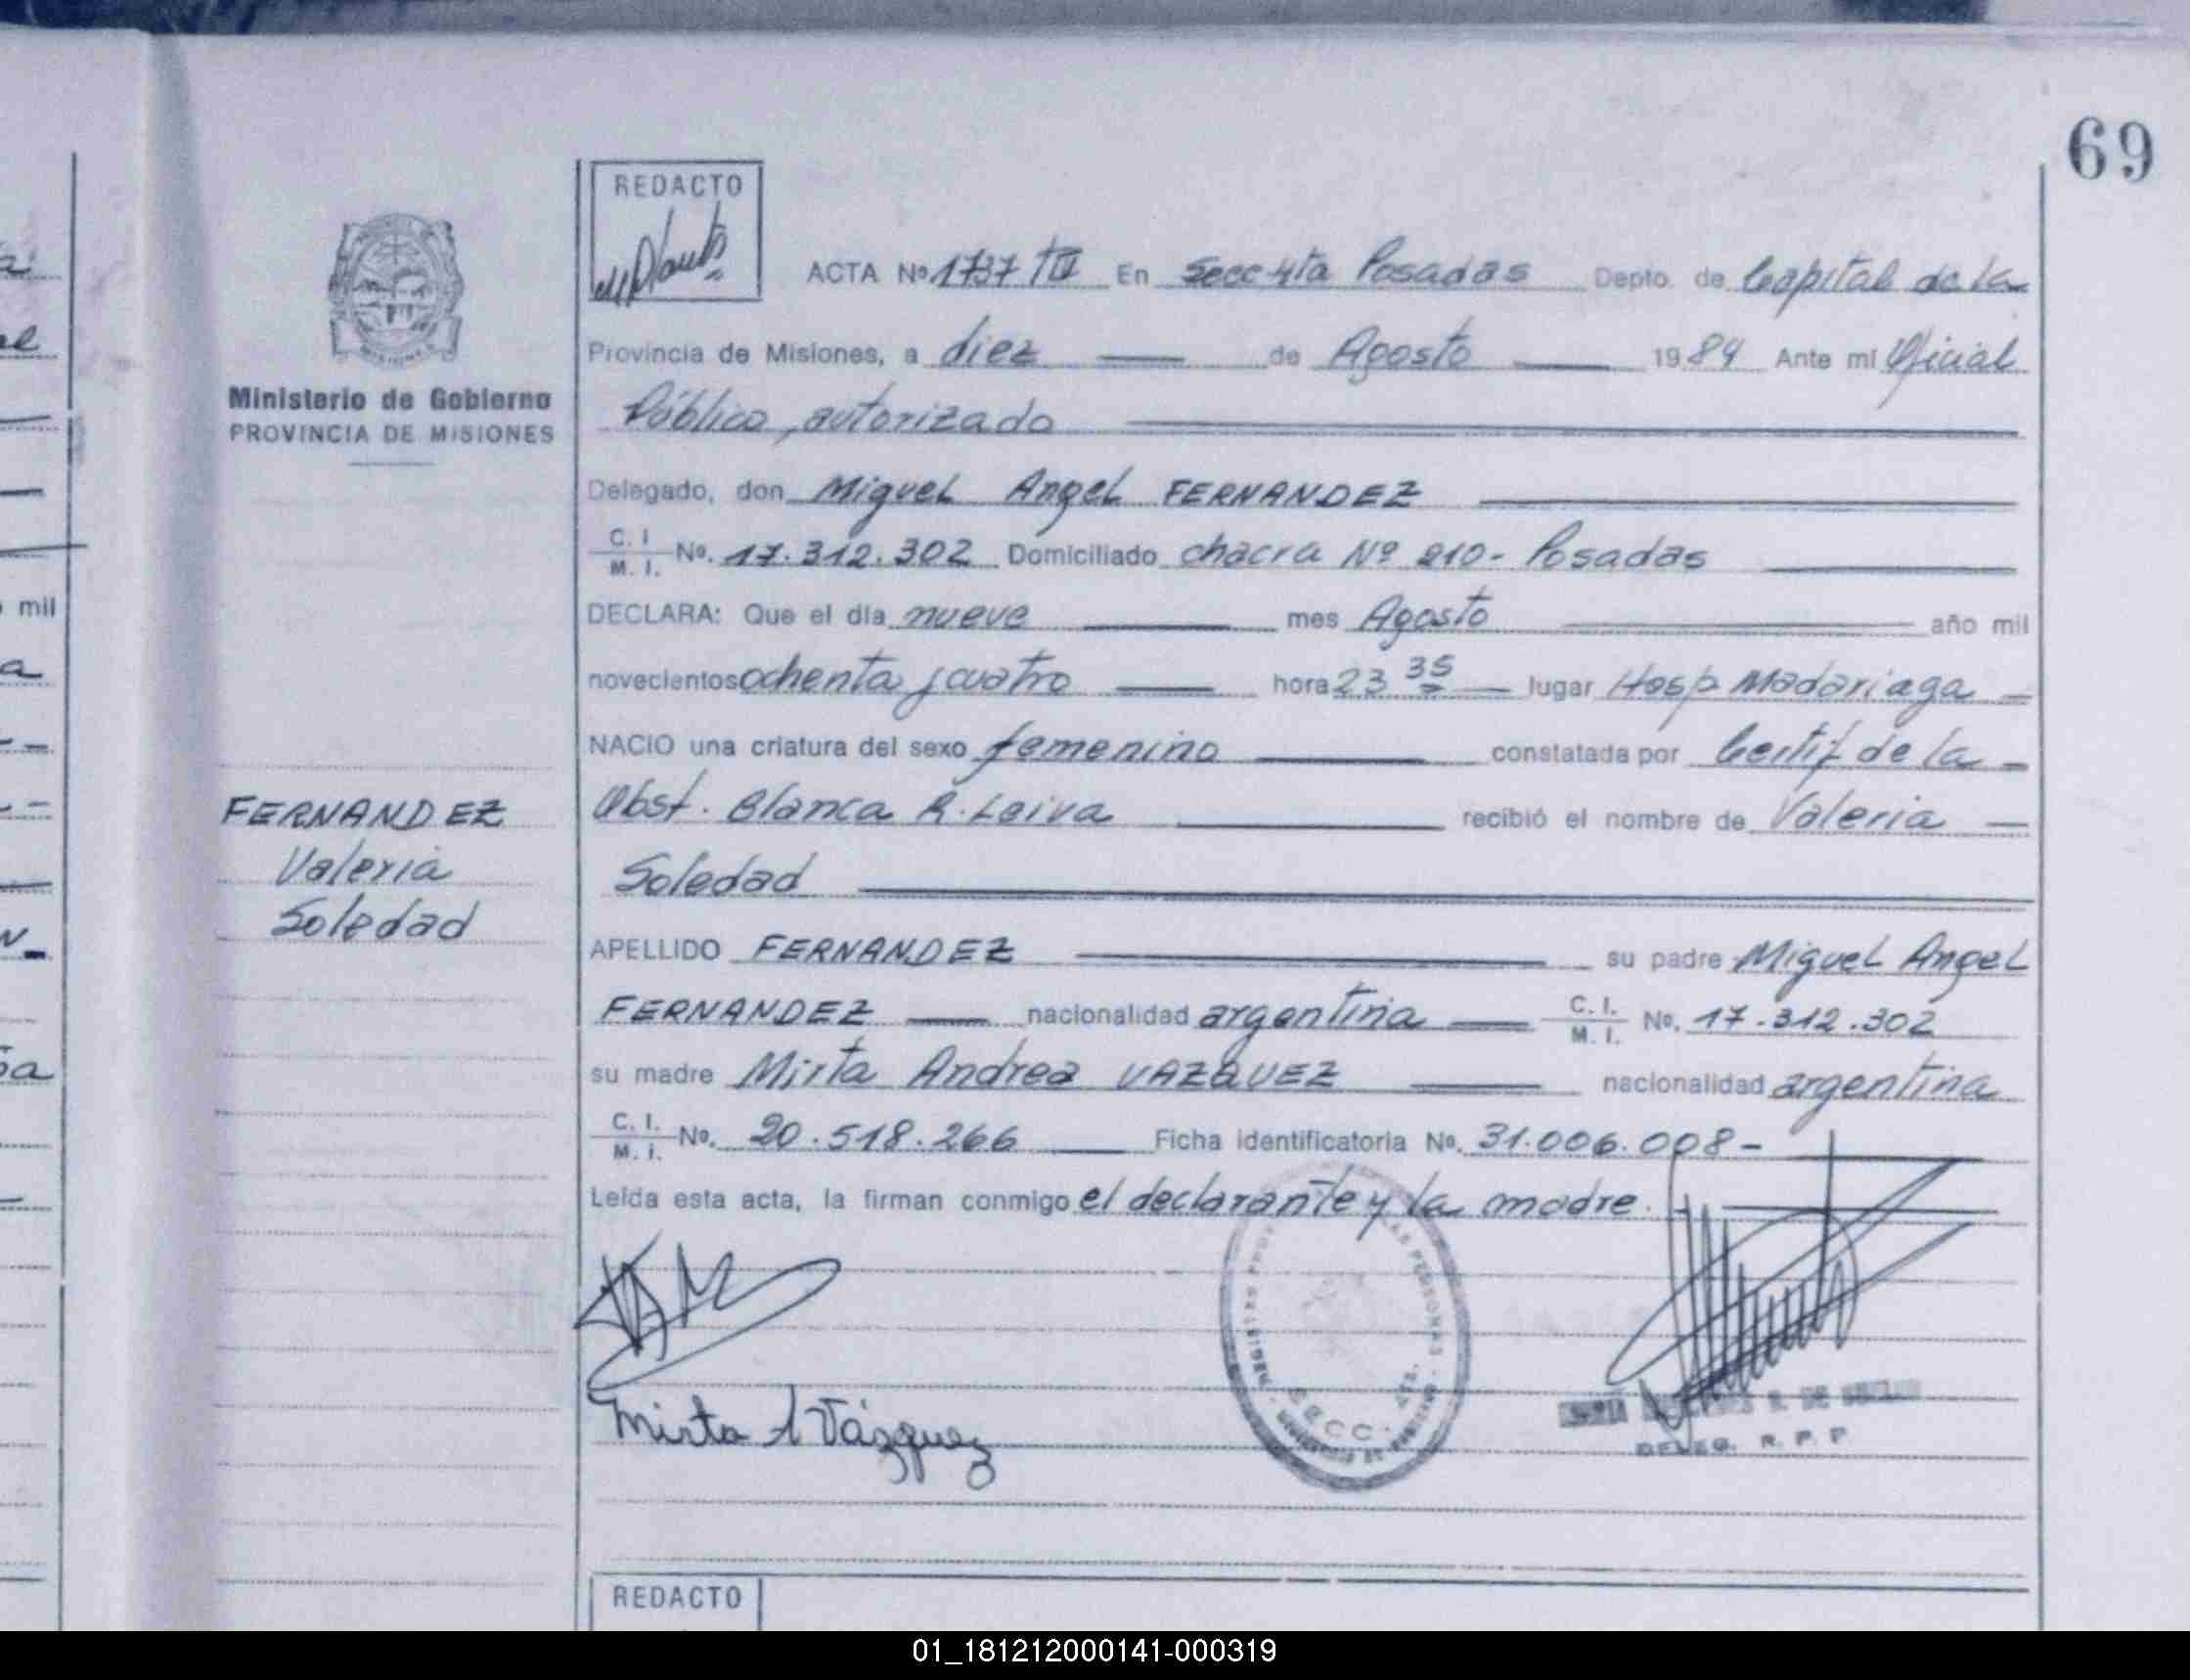 69
REDACTO
ACTA Nº 1737 TIII En Secc 4ta Posadas Depto. de Capital de la
Provincia de Misiones, a diez de Agosto 1984 Ante mi Oficial
Público, autorizado
Delegado, don Miguel Angel FERNANDEZ
C. I. M. I. Nº. 17.312.302 Domiciliado chacra Nº 210- Posadas
DECLARA: Que el día nueve mes Agosto año mil
novecientos ochenta y cuatro hora 23 35 lugar Hosp Madariaga
NACIO una criatura del sexo femenino constatada por Certif de la
Obst. Blanca R. Leiva recibió el nombre de Valeria
Soledad
APELLIDO FERNANDEZ su padre Miguel Angel
FERNANDEZ nacionalidad argentina C. I. M. I. Nº. 17.312.302
su madre Mirta Andrea VAZQUEZ nacionalidad argentina
C. I. M. I. Nº. 20.518.266 Ficha identificatoria Nº. 31.006.008-
Leída esta acta, la firman conmigo el declarante y la madre.
Mirta A Vázquez
SECC. 4TA.
DELEG. R. P. P
REDACTO
Ministerio de Gobierno
PROVINCIA DE MISIONES
FERNANDEZ
Valeria
Soledad
mil
01_181212000141-000319